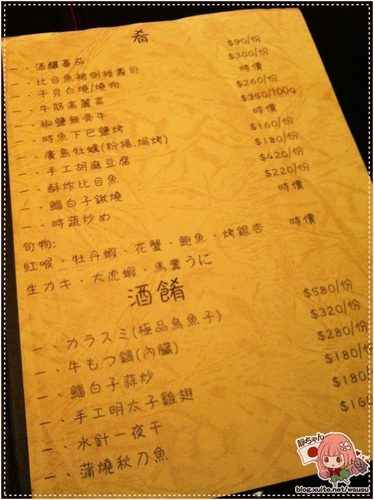 肴
一、酒釀蕃茄 $90/份
一、比目魚裙側握壽司 $300/份
一、干貝白燒/燒物 時價
一、牛筋高麗菜 $260/份
一、椒鹽無骨牛 $350/100g
一、時魚下巴鹽烤 時價
一、廣島牡蠣(粉揚.焗烤) $160/份
一、手工胡麻豆腐 $180/份
一、酥炸比目魚 $420/份
一、鱈白子鍬燒 $220/份
一、時蔬炒め 時價
旬物:
紅喉、牡丹蝦、花蟹、鮑魚、烤銀杏 時價
生カキ、大虎蝦、馬糞うに
酒餚
一、カラスミ(極品烏魚子) $580/份
一、牛もつ鍋(內臟) $320/份
一、鱈白子蒜炒 $280/份
一、手工明太子雞翅 $180/份
一、水針一夜干 $180/
一、蒲燒秋刀魚 $160
靜ちゃん
blog.xuite.net/wsusu